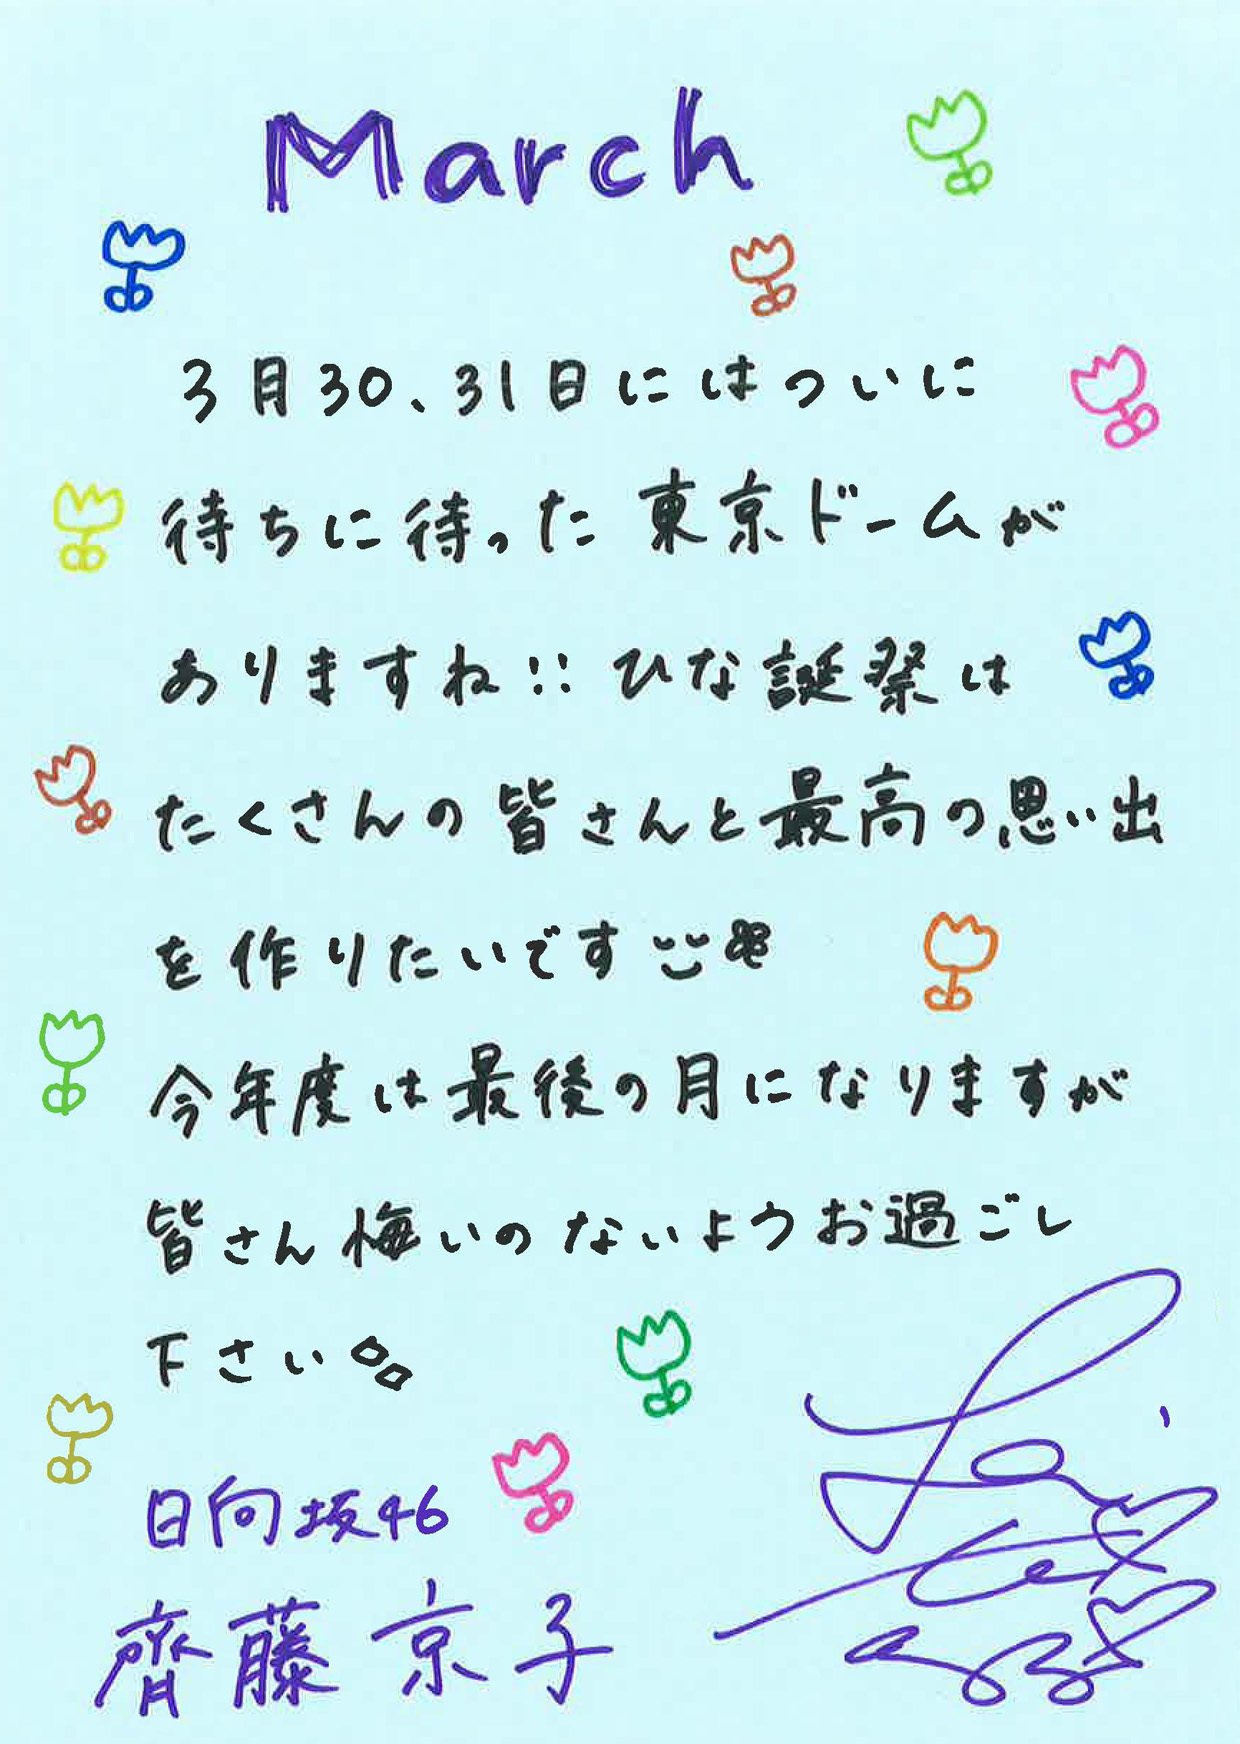 March
3月30、31日にはついに
待ちに待った東京ドームが
ありますね!!ひな誕祭は
たくさんの皆さんと最高の思い出
を作りたいです
今年度は最後の月になりますが
皆さん悔いのないようお過ごし
下さい
日向坂46
齊藤京子